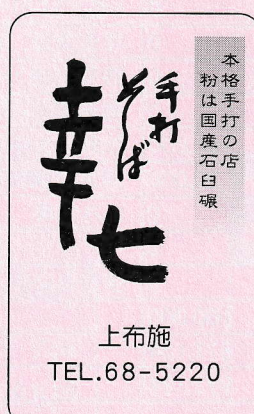 本格手打の店
粉は国産石臼碾
手打
そば
幸七
上布施
TEL.68-5220